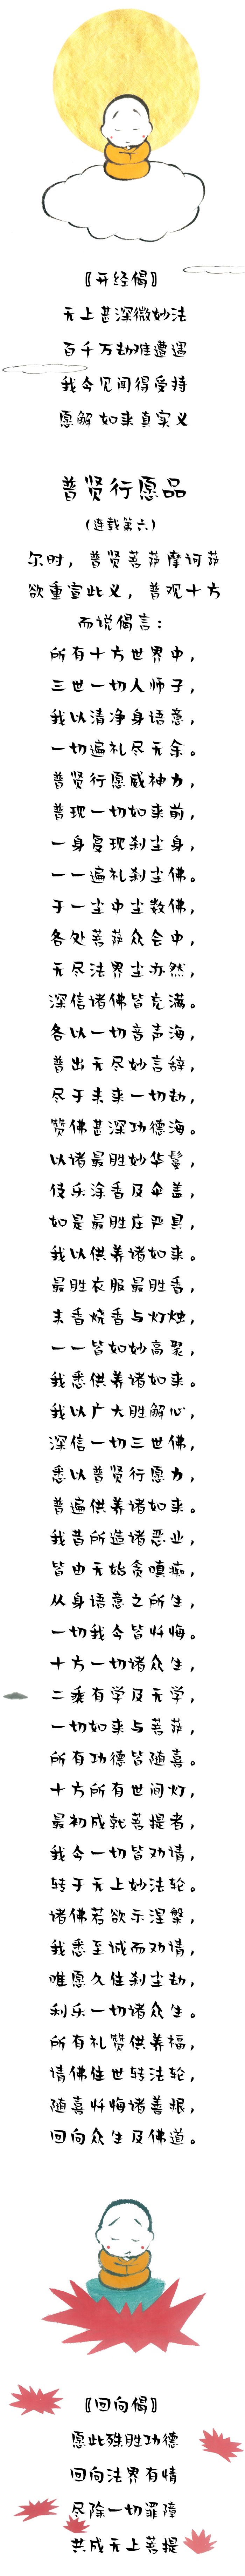 〖开经偈〗
无上甚深微妙法
百千万劫难遭遇
我今见闻得受持
愿解如来真实义
普贤行愿品
(连载第六)
尔时，普贤菩萨摩诃萨
欲重宣此义，普观十方
而说偈言：
所有十方世界中，
三世一切人师子，
我以清净身语意，
一切遍礼尽无余。
普贤行愿威神力，
普现一切如来前，
一身复现刹尘身，
一一遍礼刹尘佛。
于一尘中尘数佛，
各处菩萨众会中，
无尽法界尘亦然，
深信诸佛皆充满。
各以一切音声海，
普出无尽妙言辞，
尽于未来一切劫，
赞佛甚深功德海。
以诸最胜妙华鬘，
伎乐涂香及伞盖，
如是最胜庄严具，
我以供养诸如来。
最胜衣服最胜香，
末香烧香与灯烛，
一一皆如妙高聚，
我悉供养诸如来。
我以广大胜解心，
深信一切三世佛，
悉以普贤行愿力，
普遍供养诸如来。
我昔所造诸恶业，
皆由无始贪嗔痴，
从身语意之所生，
一切我今皆忏悔。
十方一切诸众生，
二乘有学及无学，
一切如来与菩萨，
所有功德皆随喜。
十方所有世间灯，
最初成就菩提者，
我今一切皆劝请，
转于无上妙法轮。
诸佛若欲示涅槃，
我悉至诚而劝请，
唯愿久住刹尘劫，
利乐一切诸众生。
所有礼赞供养福，
请佛住世转法轮，
随喜忏悔诸善根，
回向众生及佛道。
〖回向偈〗
愿此殊胜功德
回向法界有情
尽除一切罪障
共成无上菩提